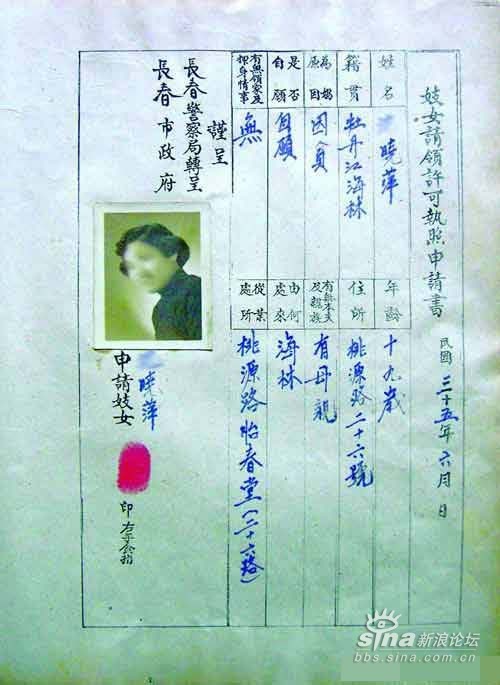 妓女請領許可執照申請書
民國三十五年六月 日
姓名
曉萍
年齡
十九歲
籍貫
牡丹江海林
住所
桃源路二十六號
為娼原因
因貧
有無本夫及親族
有母親
是否自願
自願
由何處來
海林
有無領家及押身情事
無
從業處所
桃源路怡春堂(二十六號)
謹呈
長春警察局轉呈
長春市政府
申請妓女
曉萍
印
右手食指
sina 新浪论坛
bbs.sina.com.cn